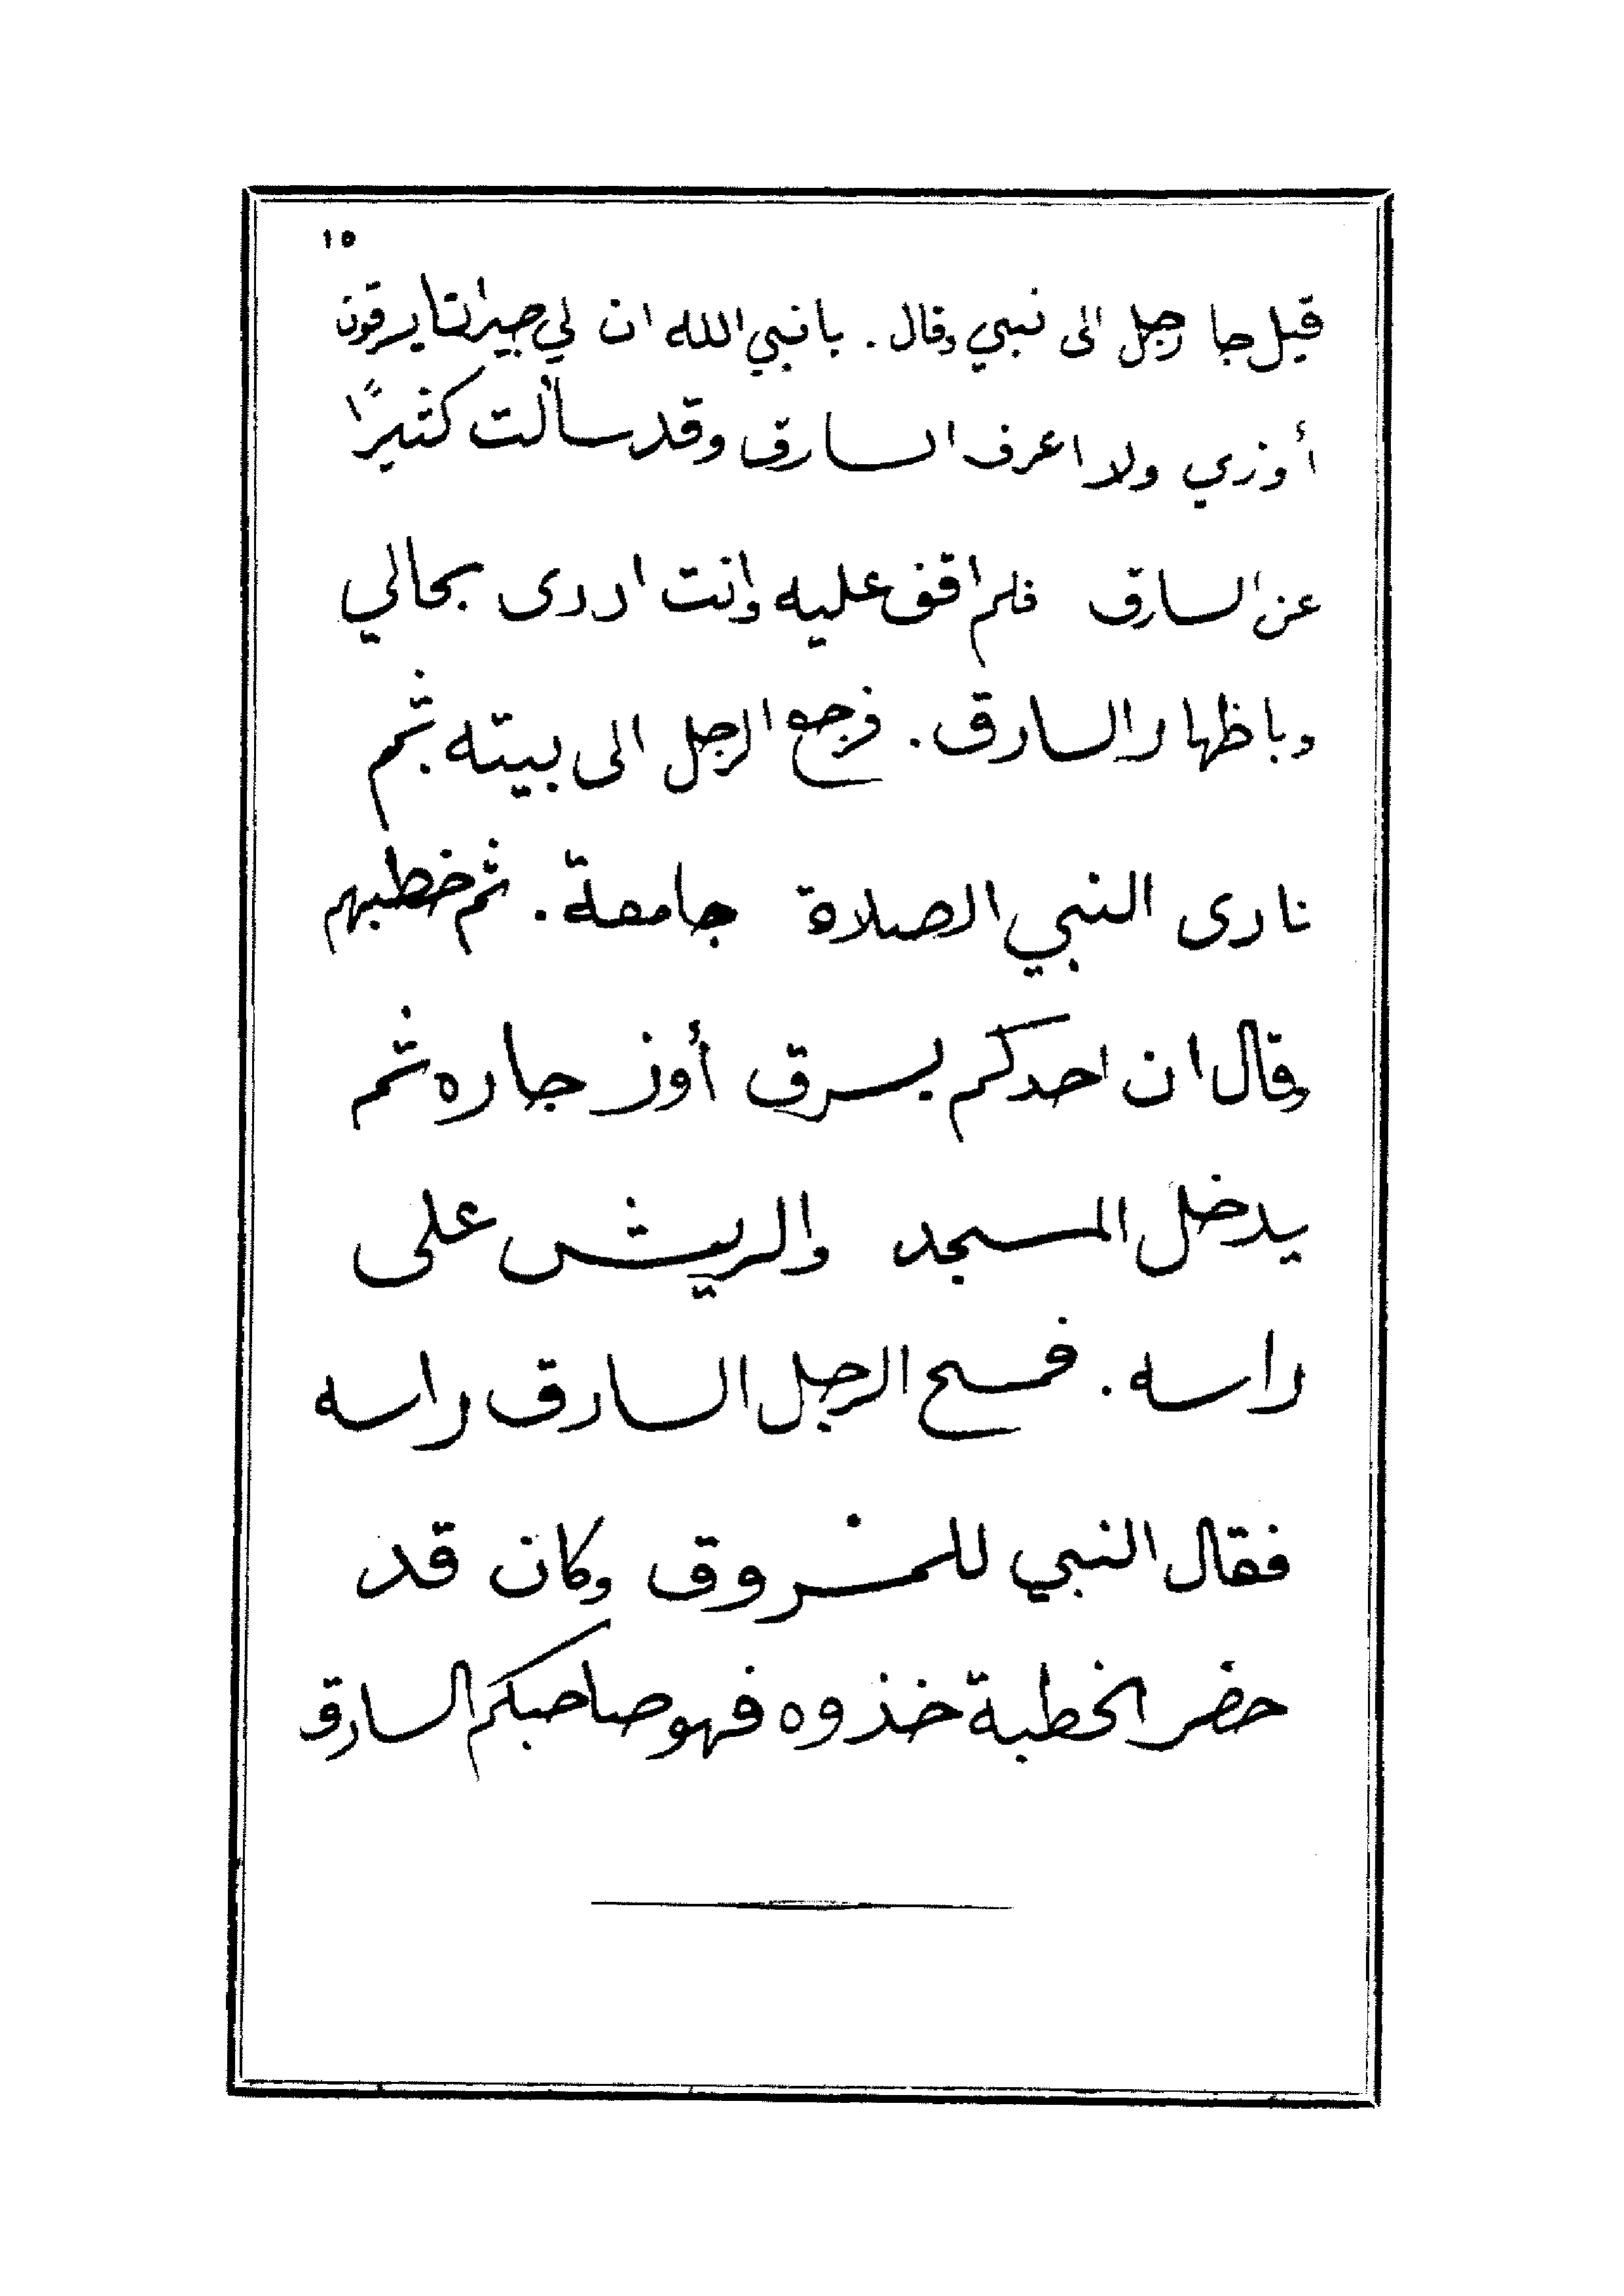 ١٥
قيل جا رجل الى نبي وقال . يا نبي الله ان لي جيرانا يرقون
أوزي ولا اعرف السارق وقد سألت كثيرًا
عن السارق فلم اقف عليه وانت ادرى بحالي
وباظهار السارق . فرجع الرجل الى بيته . ثم
نادى النبي الصلاة جامعة . ثم خطبهم
وقال ان احدكم يسرق أوز جاره ثم
يدخل المسجد والريش على
راسه . فمسح الرجل السارق راسه
فقال النبي للمسروق وكان قد
حضر الخطبة خذوه فهو صاحبكم السارق